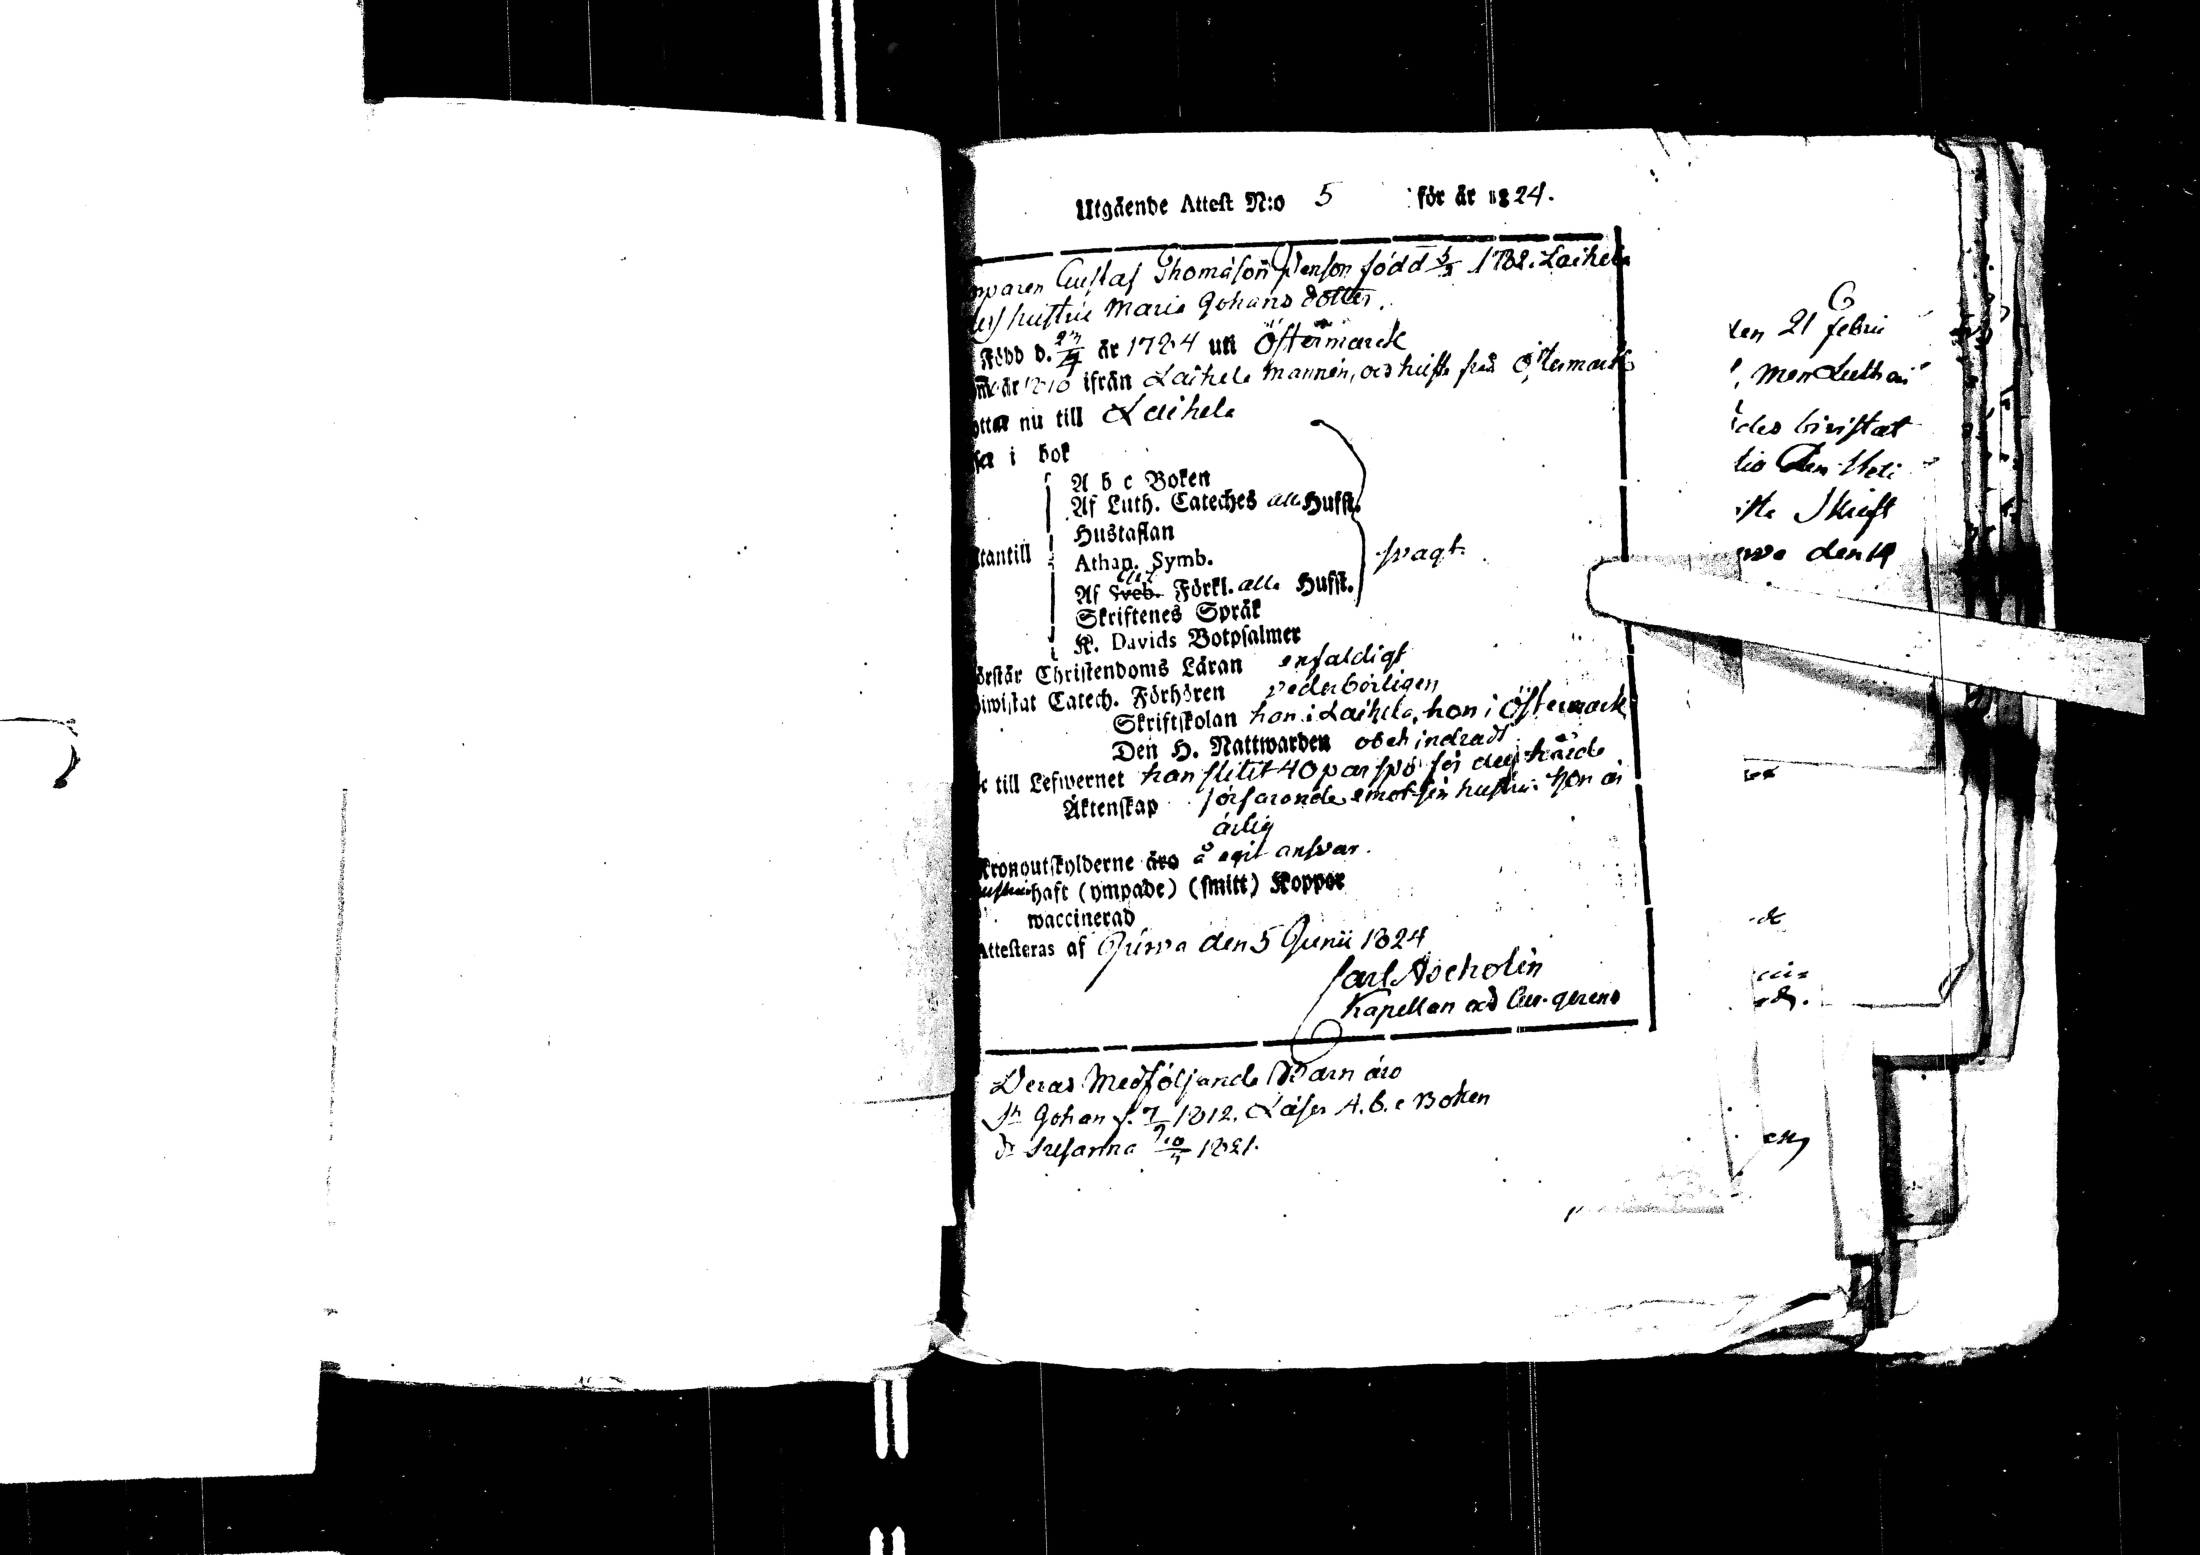 Utgående Attest N:o 5 för år 1824.
Gustaf Thomasson född 5/3 1782 i Laihela
hustru Maria Johansdotter.
Född d. år 1784 uti Östermarck
år 1810 ifrån Laihela mannen, och hustr från Östermark
nu till Laihela
i bok
A b c Boken
Af Luth. Cateches alla Hufst.
Hustaflan
Athan. Symb.
svagt
Af Sveb. Förkl. alla Hufst.
Skriftenes Språk
K. Davids Botpsalmer
Christendoms Läran enfaldigt
Catech. Förhören vederbörligen
Skriftskolan han i Laihela, hon i Östermark
Den H. Nattwarden obehindradt
till Lefwernet han slitit 40 par spö för des hårde
Äktenskap förfarande emot sin hustru: hon är
ärlig
Kronoutskylderne äro å egit ansvar.
haft (ympade) (smitt) Koppor
waccinerad
Attesteras af Jurva den 5 Junii 1824
Carl Ascholin
Kapellan och Cur. gerens
Deras Medföljande Barn äro
Sn Johan f. 1812. Läser A.b.c Boken
Dr Susanna 1821.
den 21 febru
men Luth
bivistat
Skrift
den 19